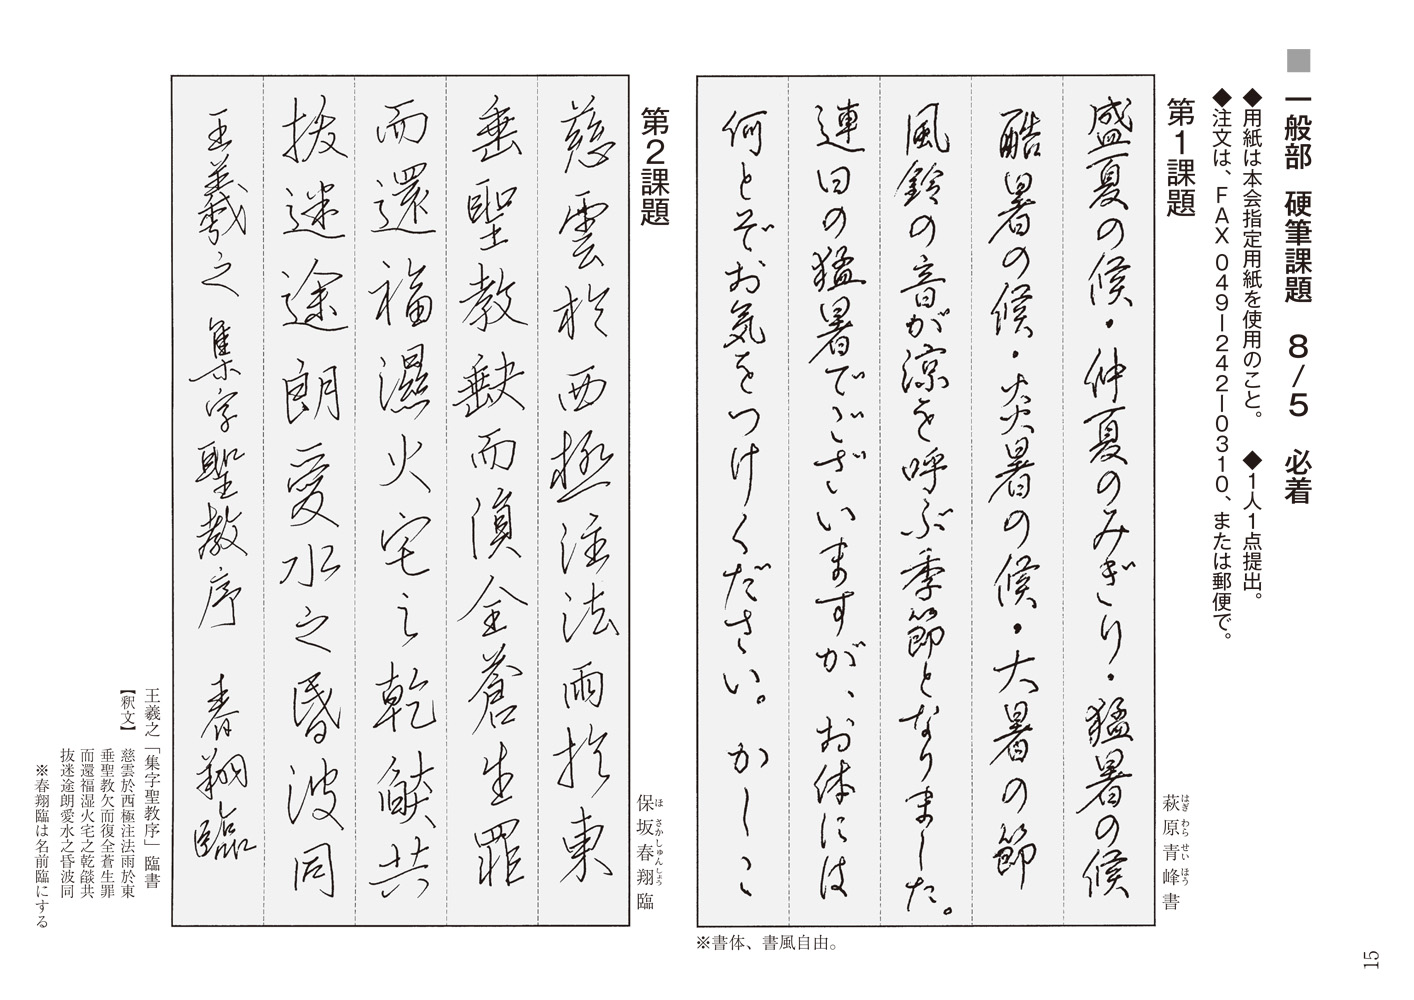 ■ 一般部 硬筆課題 8/5 必着
◆用紙は本会指定用紙を使用のこと。 ◆1人1点提出。
◆注文は、FAX 049ー242ー0310、または郵便で。
第1課題
萩原青峰書
はぎわらせいほう
盛夏の候・仲夏のみぎり・猛暑の候
酷暑の候・炎暑の候・大暑の節
風鈴の音が涼を呼ぶ季節となりました。
連日の猛暑でございますが、お体には
何とぞお気をつけください。 かしこ
※書体、書風自由。
第2課題
保坂春翔臨
ほさかしゅんしょう
慈雲於西極注法雨於東
垂聖教缺而復全蒼生罪
而還福濕火宅之乾燄共
拔迷途朗愛水之昏波同
王羲之集字聖教序 春翔臨
王羲之「集字聖教序」臨書
【釈文】 慈雲於西極注法雨於東
垂聖教欠而復全蒼生罪
而還福湿火宅之乾燄共
抜迷途朗愛水之昏波同
※春翔臨は名前臨にする
15